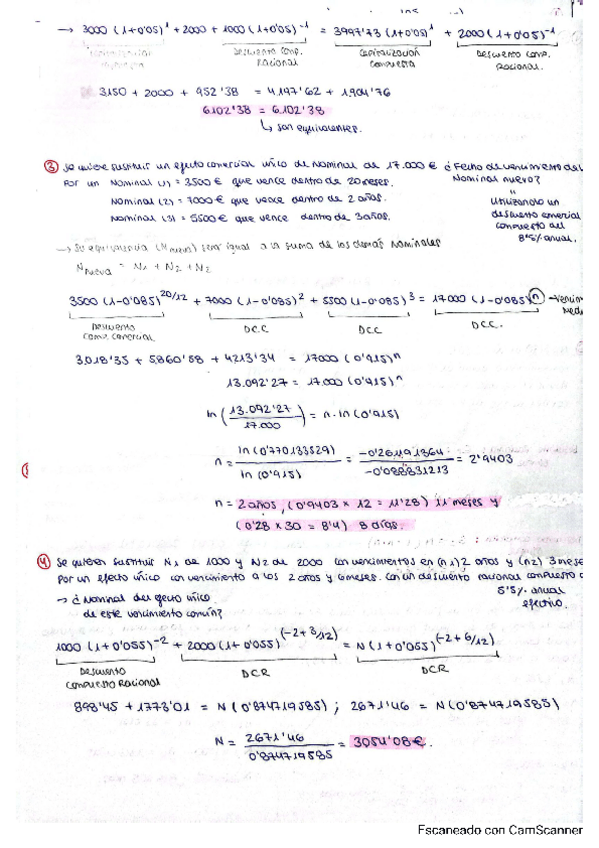 → 3000 (1+0'05)¹ + 2000 + 1000 (1+0'05)⁻¹ = 3997'73 (1+0'05)¹ + 2000 (1+0'05)⁻¹
Descuento Comp. Racional
Capitalización Compuesta
Descuento Comp. Racional.
3150 + 2000 + 952'38 = 4.197'62 + 1.904'76
6.102'38 = 6.102'38
↳ son equivalentes.
③ Se quiere sustituir un efecto comercial único de Nominal de 17.000 € ¿Fecha de vencimiento del
Por un Nominal (1) = 3500 € que vence dentro de 20 meses. Nominal nuevo?
Nominal (2) = 7000 € que vence dentro de 2 años.
Nominal (3) = 5500 € que vence dentro de 3 años.
"
Utilizando un
descuento comercial
compuesto del
8'5% anual.
→ Su equivalencia (N nueva) será igual a la suma de los demás nominales
N nueva = N₁ + N₂ + N₂
3500 (1-0'085)^20/12 + 7000 (1-0'085)² + 5500 (1-0'085)³ = 17000 (1-0'085)ⁿ →
Descuento Comp. Comercial
D.C.C
D.C.C
D.C.C.
3.018'35 + 5.860'58 + 4213'34 = 17000 (0'915)ⁿ
13.092'27 = 17.000 (0'915)ⁿ
ln (13.092'27 / 17.000) = n · ln (0'915)
n = ln (0'770133529) / ln (0'915) = -0'261191364 / -0'088831213 = 2'9403
n = 2 años, (0'9403 × 12 = 11'28) 11 meses y
(0'28 × 30 = 8'4) 8 días.
④ Se quieren sustituir N₁ de 1000 y N₂ de 2000 con vencimientos en (n₁) 2 años y (n₂) 3 mese
Por un efecto único con vencimiento a los 2 años y 6 meses. Con un descuento racional compuesto
5'5% anual
efectivo.
→ ¿Nominal del efecto único
de este vencimiento común?
1000 (1+0'055)⁻² + 2000 (1+0'055)^(-2+3/12) = N (1+0'055)^(-2+6/12)
Descuento Compuesto Racional
D.C.R
D.C.R
898'45 + 1773'01 = N (0'874719585) ; 2671'46 = N (0'874719585)
N = 2671'46 / 0'874719585 = 3054'08 €.
Escaneado con CamScanner